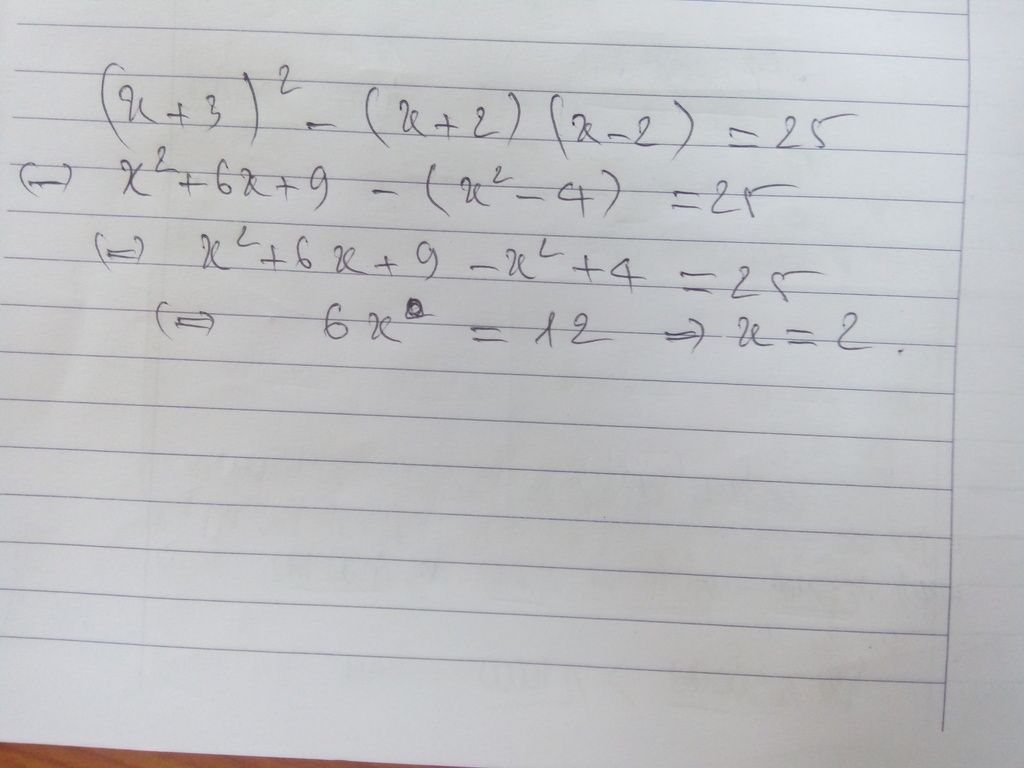 (x+3)² - (x+2)(x-2) = 25
(=) x²+6x+9 - (x²-4) = 25
(=) x²+6x+9 -x²+4 = 25
(=) 6x = 12 => x = 2.